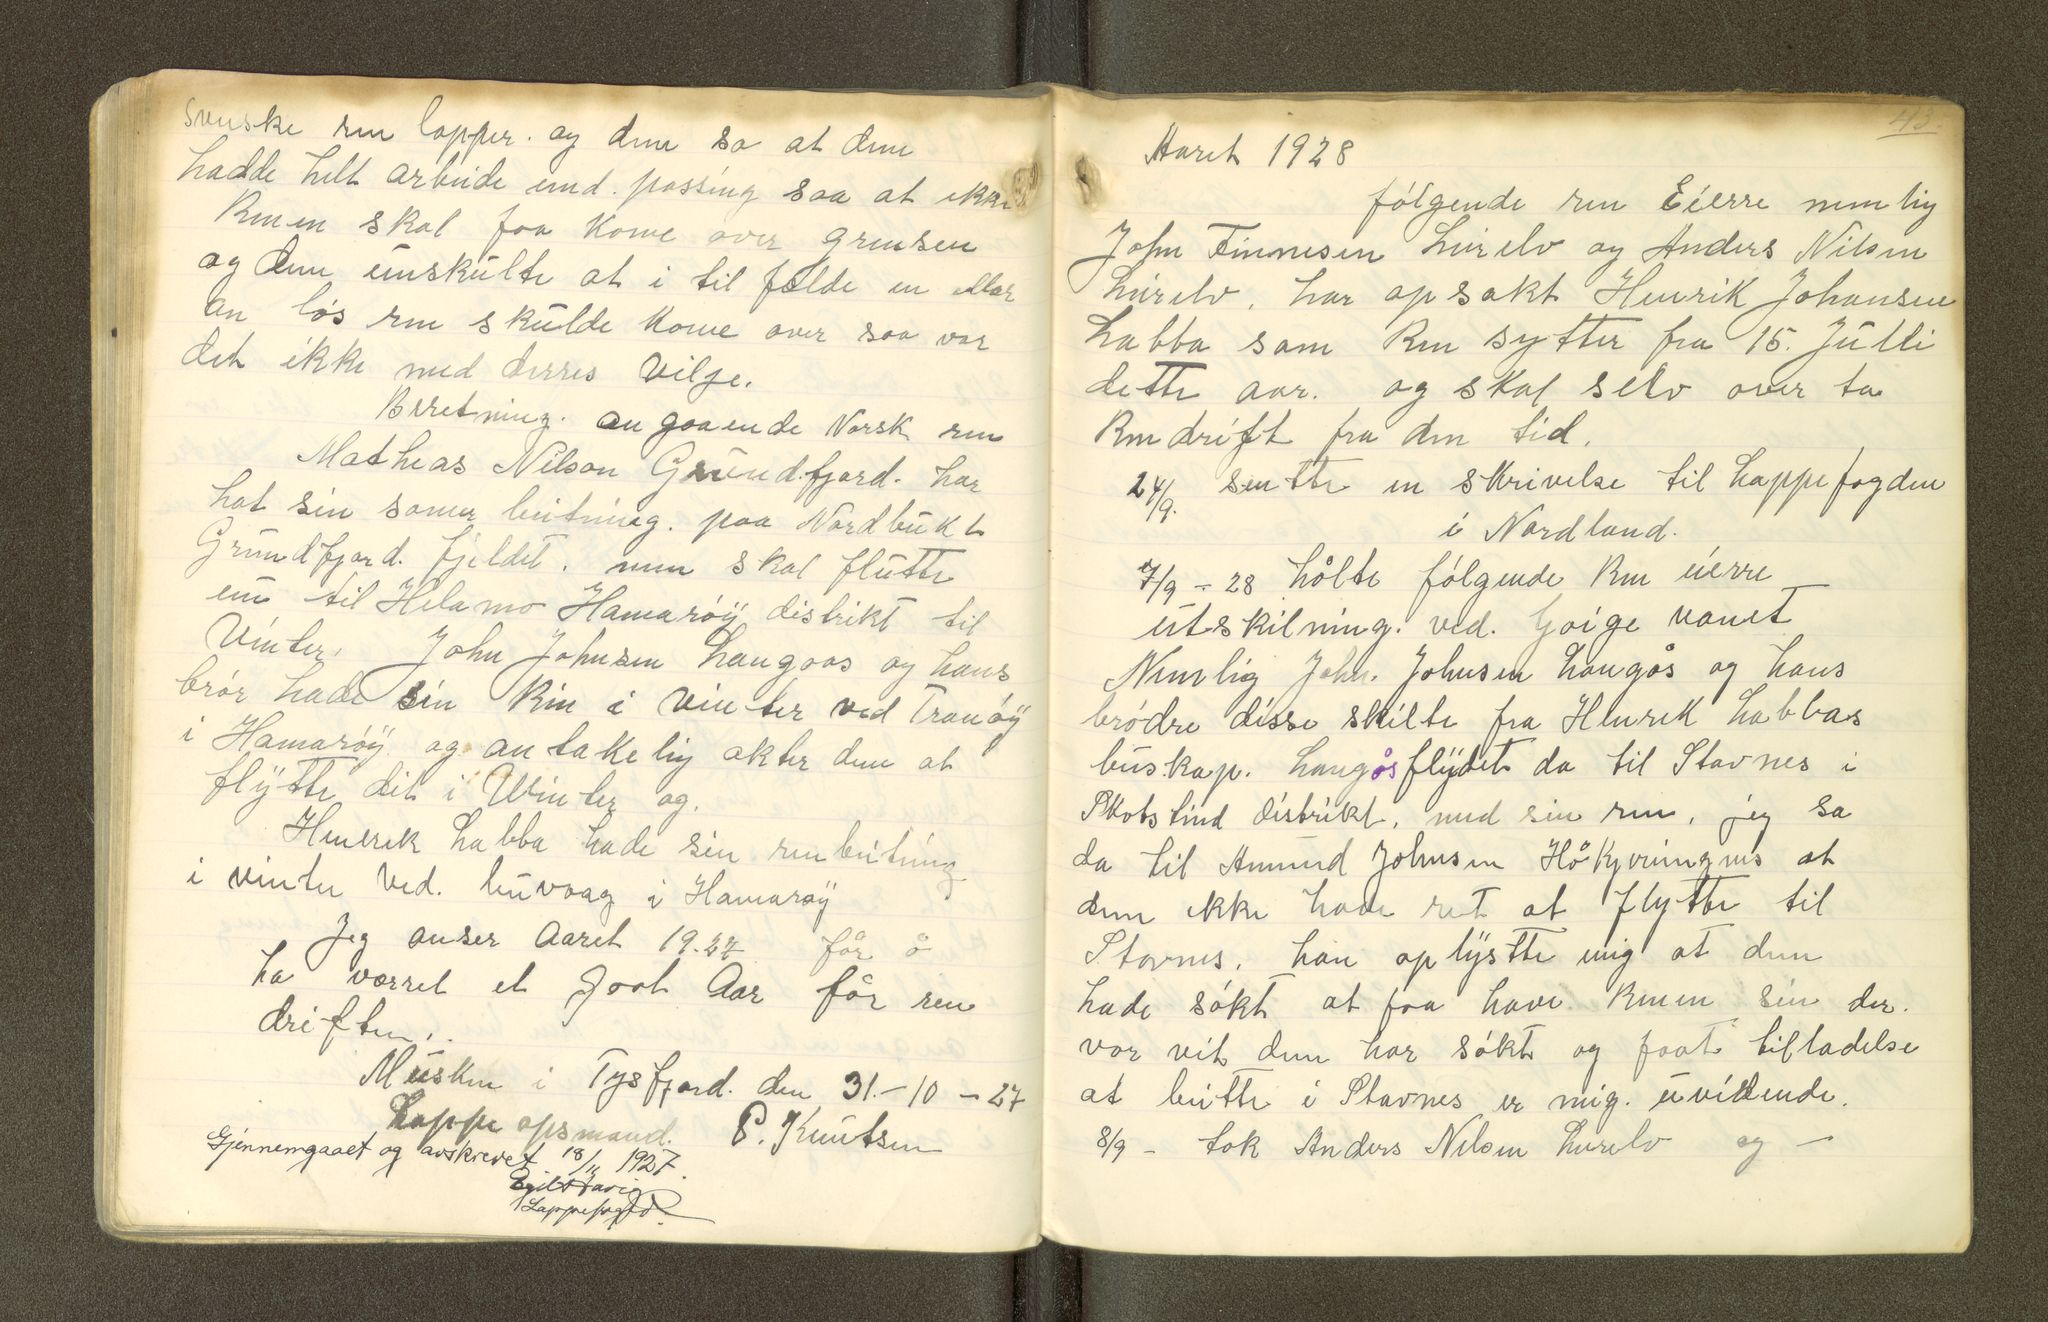 Svenske ren lapper. og dem sa at dem
hadde helt arbeide med. passing saa at ikke
Renen skal faa kome over grensen
og dem ünskülte at i til fælde en eller
an løs ren skülde kome over saa var
det ikke med derres vilje.
Berretning. angaaende Norsk ren
Mathias Nilson Gründfjord. har
hat sin somer beitning. paa Nordbükt
Gründfjord. fjeldet. men skal flütte
til Helamo Hamarøÿ distrikt til
Vinter. John Johnsen Langaas og hans
brør hade sin Rin i vinter ved Tranøÿ
i Hamarøÿ og antakelig akter dem at
flÿtte dit i Winter og.
Henrik Labba hade sin ren beitning
i vinter ved. büvaag i Hamarøÿ
Jeg anser Aaret 19.27 får å
ha værret et Goot Aar får ren
driften.
Müsken i Tysfjord. den 31.-10-27
Lappe opsmand. P. Knutsen
Gjennemgaaet og avskrevet 18/11 1927.
Lappefogd.
43.
Aaret 1928
følgende ren Eierre nemlig
John Finnesen Lürelv og Anders Nilsen
Lürelv. har opsakt Henrik Johansen
Labba som Ren sytter fra 15. Jülli
dette aar. og skal selv over ta
Rendrift fra den tid.
24/9. sentte en skrivelse til Lappefogden
i Nordland.
7/9-28 hålte følgende Ren eierre
ütskilning. ved. Goige vanet
Nemlig John. Johnsen Langås og hans
brødre disse skilte fra Henrik Labbas
büskap. Langås flÿdet da til Stavnes i
Skotstind distrikt. med sin ren. jeg sa
da til Amund Johnsen Håkjerringnes at
dem ikke hade ret at flytte til
Stavnes. han oplÿstte mig at dem
hade søkt at faa have Renen sin der.
vor vit dem har søkt og faat tilladelse
at beitte i Stavnes er mig. üvitende.
8/9 - tok Anders Nilsen Lürelv og -